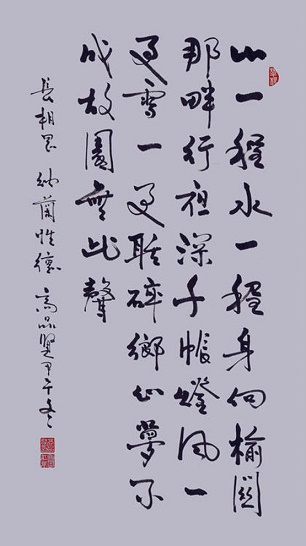 山一程水一程身向榆關
那畔行夜深千帳燈風一
更雪一更聒碎鄉心夢不
成故園無此聲
長相思 納蘭性德 高品 甲午冬